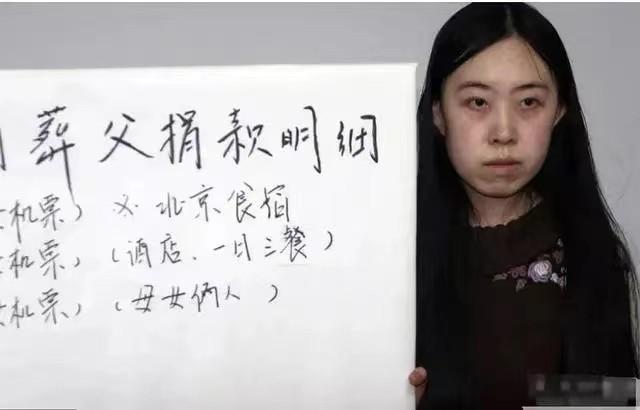 葬父捐款明细
机票) 北京食宿
机票) (酒店、一日三餐)
机票) (母女俩人)